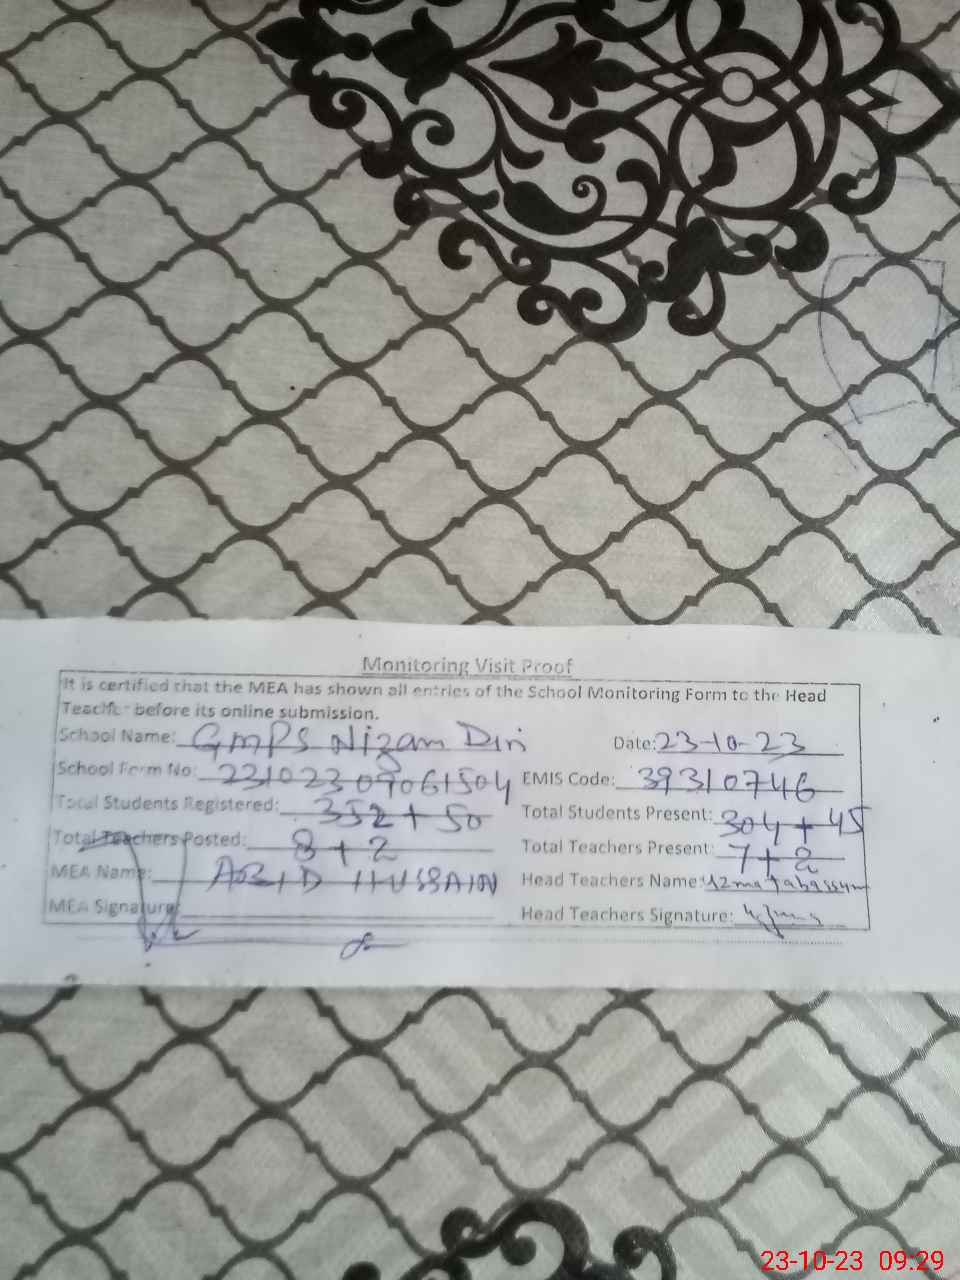 Monitoring Visit Proof
It is certified that the MEA has shown all entries of the School Monitoring Form to the Head
Teacher before its online submission.
School Name: GMPS Nizam Din Date: 23-10-23
School Form No: 23102309061504 EMIS Code: 39310746
Total Students Registered: 352 + 50 Total Students Present: 304 + 45
Total Teachers Posted: 8 + 2 Total Teachers Present: 7 + 2
MEA Name: ABID HUSSAIN Head Teachers Name: tabassum
MEA Signature: Head Teachers Signature:
23-10-23 09:29